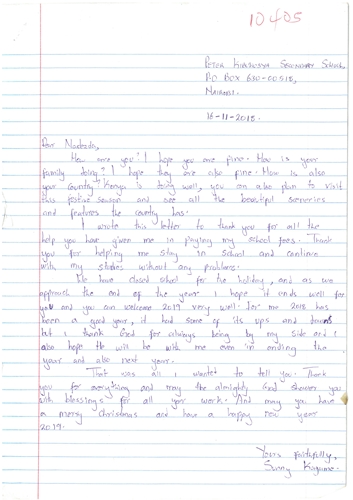 10405
Peter Kibukosya Secondary School,
P.O BOX 630-00518,
Nairobi.
16-11-2018.
Dear
How are you? I hope you are fine. How is your
family doing? I hope they are also fine. How is also
your Country? Kenya is doing well, you can also plan to visit
this festive season and see all the beautiful sceneries
and features the country has.
I wrote this letter to thank you for all the
help you have given me in paying my school fees. Thank
you for helping me stay in School and continue
with my studies without any problems.
We have closed school for the holiday, and as we
approach the end of the year I hope it ends well for
you and you can welcome 2019 very well. For me 2018 has
been a good year, it had some of its ups and downs
but I thank God for always being by my side and I
also hope He will be with me even in ending the
year and also next year.
That was all I wanted to tell you. Thank
you for everything and may the almighty God shower you
with blessings for all your work. And may you have
a merry christmas and have a happy new year
2019.
Yours faithfully,
Sunny